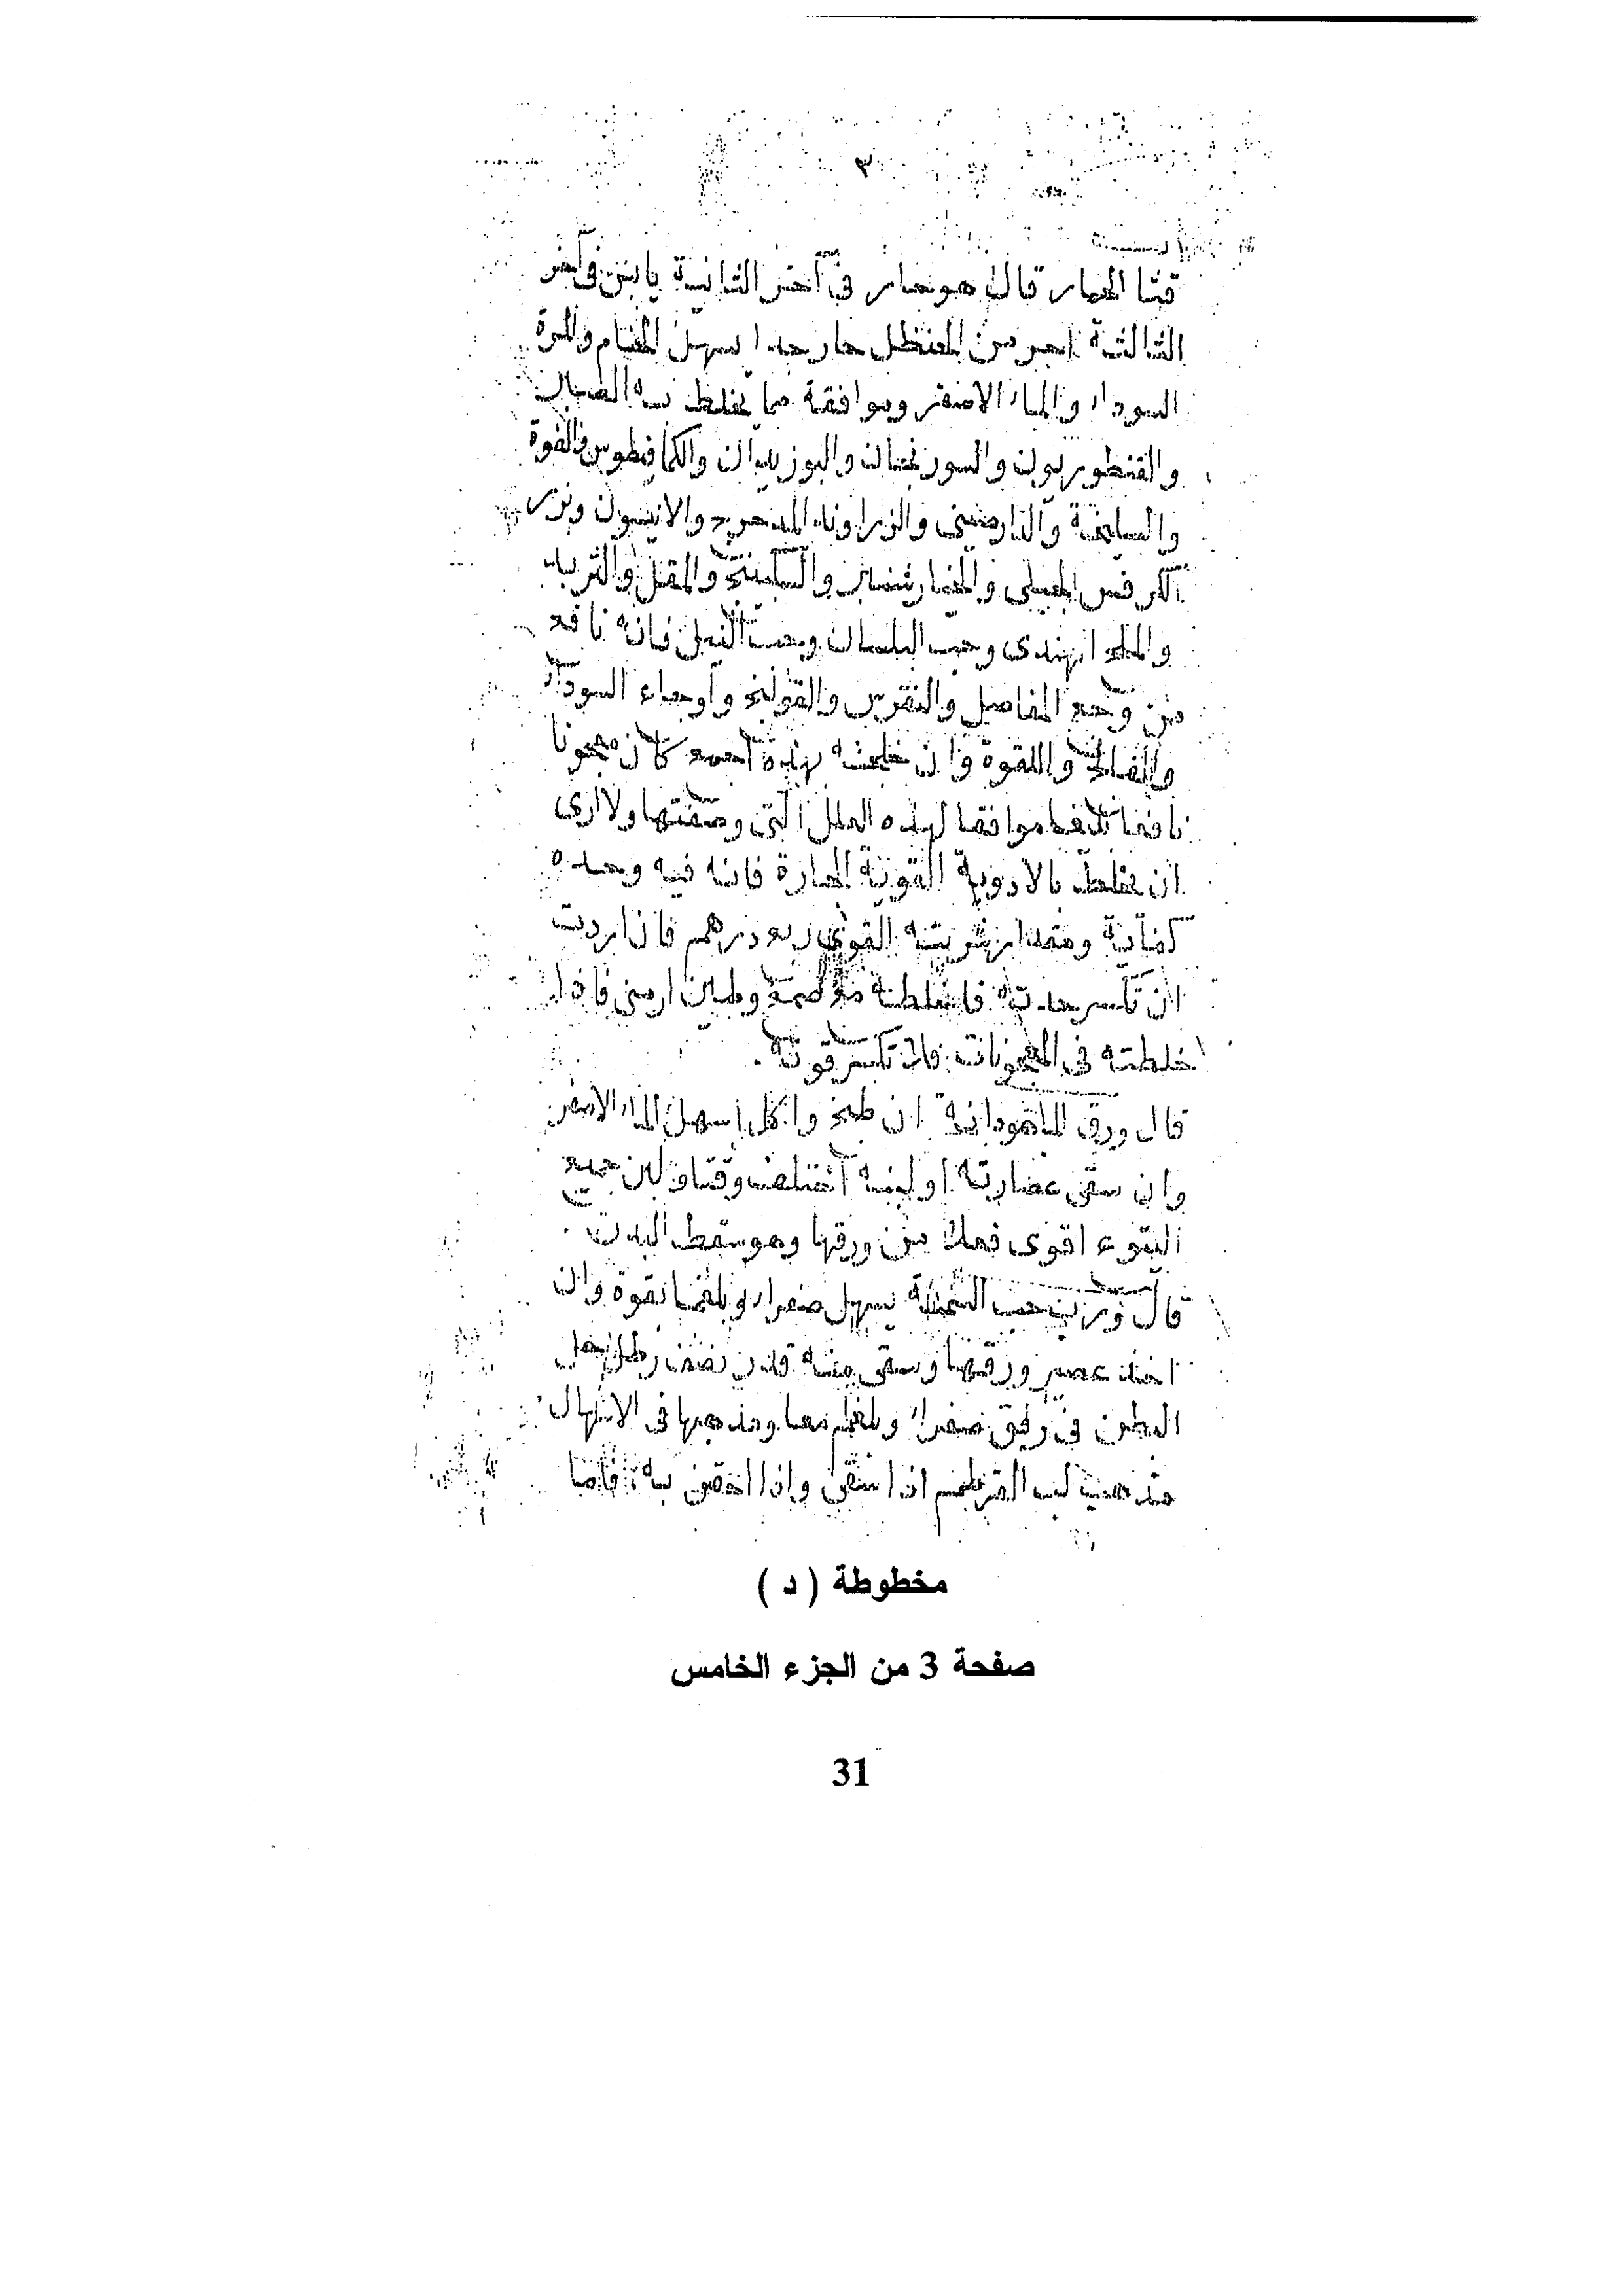 ٣
قثا الحمار قال هو حار في آخر الثانية يابس في آخر
الثالثة من الحنظل حار جدا يسهل الخام والمرة
السوداء والماء الاصفر وموافقة مما يخلط به الصبان
والقنطوريون والسورنجان والبوزيدان والكمافيطوس والقوة
والسليخة والدارصيني والزراوند المدحرج والانيسون وبزر
الكرفس الجبلي والسكبينج والمقل والتربد
والملح الهندي وحب البلسان وحب النيل فانه نافع
من وجع المفاصل والنقرس والقولنج واوجاع السوداء
والفالج واللقوة وان خلطته بهذه اجمع كان معجونا
نافعا موافقا لهذه العلل التي وصفتها ولا ارى
ان يخلط بالادوية القوية الحارة فانه فيه وحده
كفاية ومقدار شربته القوي ربع درهم فان اردت
ان تكسر حدته فاخلطه وطين ارمني فاذا
خلطته في المعجونات فلا تكسر قوته .
قال ورق الماهودانة ان طبخ واكل اسهل الماء الاصفر
وان سقى عصارته او لبنه ولبن جميع
اليتوع اقوى فعلا من ورقها وهو يسقط البدن .
قال يسهل صفراء وبلغما بقوة وان
اخذ عصير ورقها وسقى منه قدر نصف رطل
البطن في رفق صفراء وبلغم معا ومذهبها في الاسهال
مذهب لب القرطم اذا سقى واذا احتقن به فاما
مخطوطة ( د )
صفحة 3 من الجزء الخامس
31